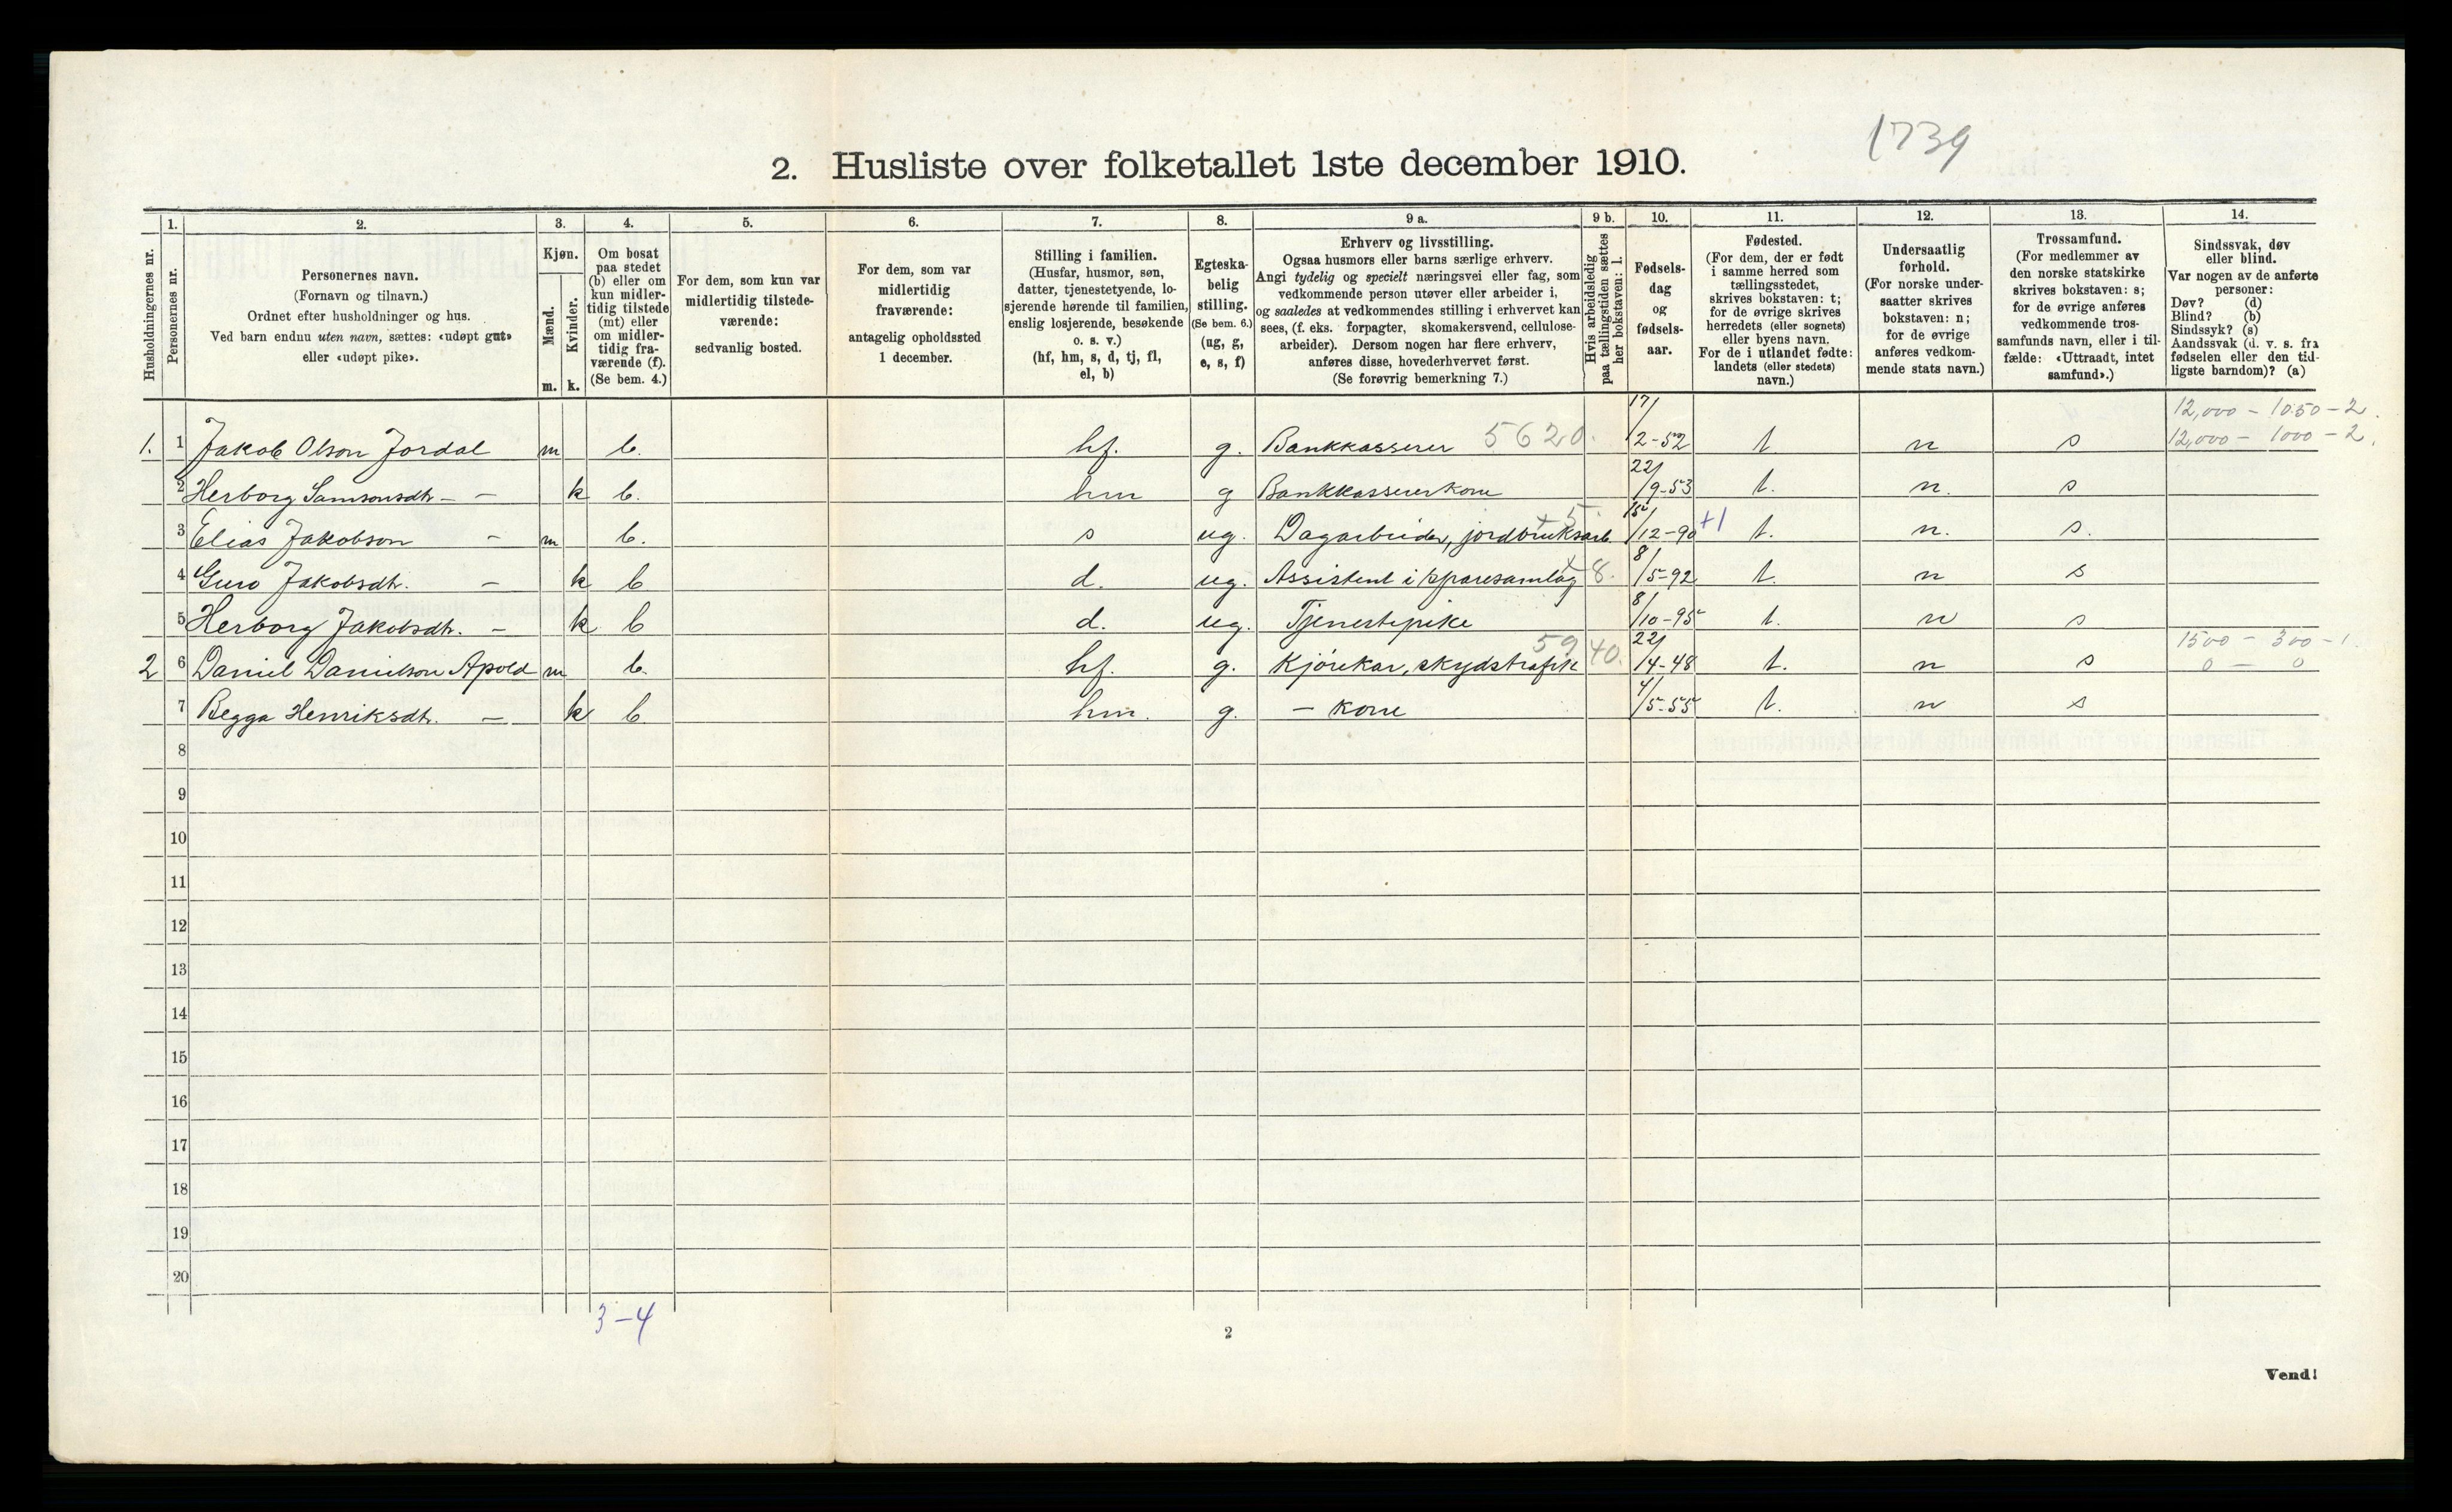 1739
2. Husliste over folketallet 1ste december 1910.
Husholdningernes nr.
1.
Personernes nr.
2.
Personernes navn.
(Fornavn og tilnavn.)
Ordnet efter husholdninger og hus.
Ved barn endnu uten navn, sættes: «udøpt gut»
eller «udøpt pike».
3.
Kjøn.
Mænd.
m.
Kvinder.
k.
4.
Om bosat
paa stedet
(b) eller om
kun midler-
tidig tilstede
(mt) eller
om midler-
tidig fra-
værende (f).
(Se bem. 4.)
5.
For dem, som kun var
midlertidig tilstede-
værende:
sedvanlig bosted.
6.
For dem, som var
midlertidig
fraværende:
antagelig opholdssted
1 december.
7.
Stilling i familien.
(Husfar, husmor, søn,
datter, tjenestetyende, lo-
sjerende hørende til familien,
enslig losjerende, besøkende
o. s. v.)
(hf, hm, s, d, tj, fl,
el, b)
8.
Egteska-
belig
stilling.
(Se bem. 6.)
(ug, g,
e, s, f)
9 a.
Erhverv og livsstilling.
Ogsaa husmors eller barns særlige erhverv.
Angi tydelig og specielt næringsvei eller fag, som
vedkommende person utøver eller arbeider i,
og saaledes at vedkommendes stilling i erhvervet kan
sees, (f. eks. forpagter, skomakersvend, cellulose-
arbeider). Dersom nogen har flere erhverv,
anføres disse, hovederhvervet først.
(Se forøvrig bemerkning 7.)
9 b.
Hvis arbeidsledig
paa tællingstiden sættes
her bokstaven: l.
10.
Fødsels-
dag
og
fødsels-
aar.
11.
Fødested.
(For dem, der er født
i samme herred som
tællingsstedet,
skrives bokstaven: t;
for de øvrige skrives
herredets (eller sognets)
eller byens navn.
For de i utlandet fødte:
landets (eller stedets)
navn.)
12.
Undersaatlig
forhold.
(For norske under-
saatter skrives
bokstaven: n;
for de øvrige
anføres vedkom-
mende stats navn.)
13.
Trossamfund.
(For medlemmer av
den norske statskirke
skrives bokstaven: s;
for de øvrige anføres
vedkommende tros-
samfunds navn, eller i til-
fælde: «Uttraadt, intet
samfund».)
14.
Sindssvak, døv
eller blind.
Var nogen av de anførte
personer:
Døv? (d)
Blind? (b)
Sindssyk? (s)
Aandssvak (d. v. s. fra
fødselen eller den tid-
ligste barndom)? (a)
12,000 – 1050 – 2.
1. 1 Jakob Olson Jordal m b. hf. g. Bankkasserer 5620. 17/2-52 t n s 12,000 – 1000 – 2.
2 Herborg Samsonsdtr – – k b. hm g Bankkassererkone 22/9-53 t. n. s
3 Elias Jakobson – m b. s ug. Dagarbeider, jordbruksarb. +5. 15/12-90 +1 t. n. s.
4 Guro Jakobsdtr. – k b d. ug. Assistent i sparesamlag + 8. 8/5-92 t. n s
5 Herborg Jakobsdtr. – k b d. ug. Tjenestepike 8/10-95 t. n s
1500 – 300 – 1.
2 6 Daniel Danielson Apold m b. hf. g. Kjørekar, skydstrafik 5940. 22/4-48 t. n s 0 – 0
7 Begga Henriksdtr. – k b. hm. g. – kone 4/5-55 t. n s
8
9
10
11
12
13
14
15
16
17
18
19
20
3–4
2
Vend!